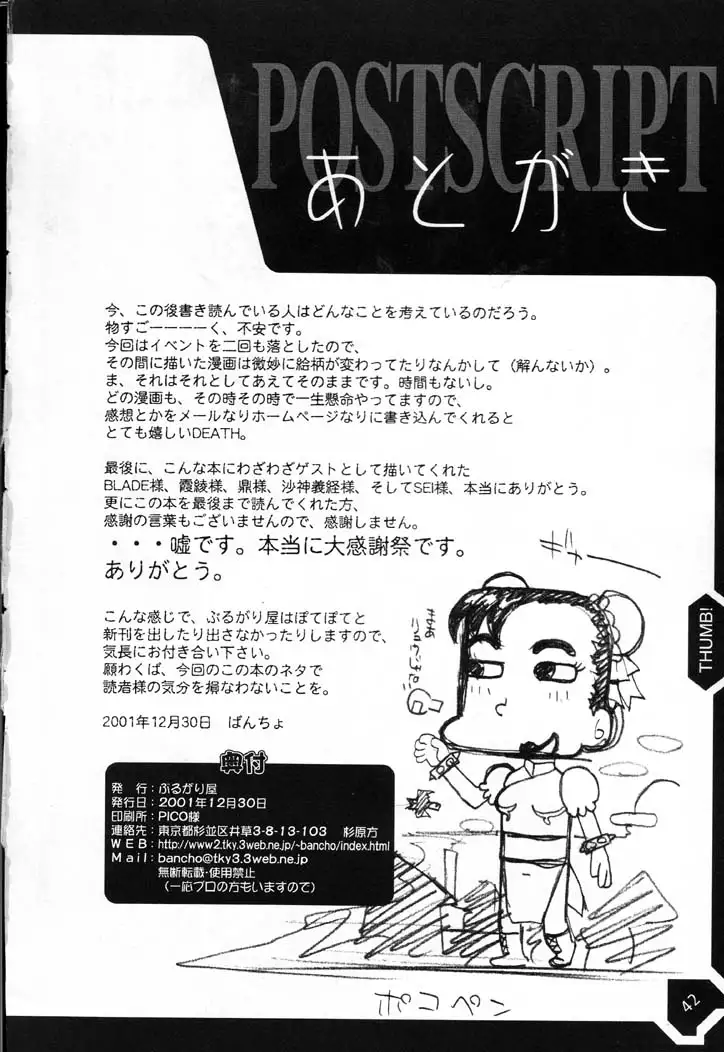 POSTSCRIPT
あとがき
今、この後書き読んでいる人はどんなことを考えているのだろう。
物すごーーーーく、不安です。
今回はイベントを二回も落としたので、
その間に描いた漫画は微妙に絵柄が変わってたりなんかして（解んないか）。
ま、それはそれとしてあえてそのままです。時間もないし。
どの漫画も、その時その時で一生懸命やってますので、
感想とかをメールなりホームページなりに書き込んでくれると
とても嬉しいDEATH。
最後に、こんな本にわざわざゲストとして描いてくれた
BLADE様、霞綾様、鼎様、沙神義経様、そしてSEI様、本当にありがとう。
更にこの本を最後まで読んでくれた方、
感謝の言葉もございませんので、感謝しません。
・・・嘘です。本当に大感謝祭です。
ありがとう。
こんな感じで、ぶるがり屋はぽてぽてと
新刊を出したり出さなかったりしますので、
気長にお付き合い下さい。
願わくば、今回のこの本のネタで
読者様の気分を損なわないことを。
2001年12月30日　ばんちょ
奥付
発　行：ぶるがり屋
発行日：2001年12月30日
印刷所：PICO様
連絡先：東京都杉並区井草3-8-13-103　杉原方
ＷＥＢ：http://www2.tky.3web.ne.jp/~bancho/index.html
Ｍail：bancho@tky3.3web.ne.jp
無断転載・使用禁止
（一応プロの方もいますので）
ギャー
ポコペン
THUMB!
42